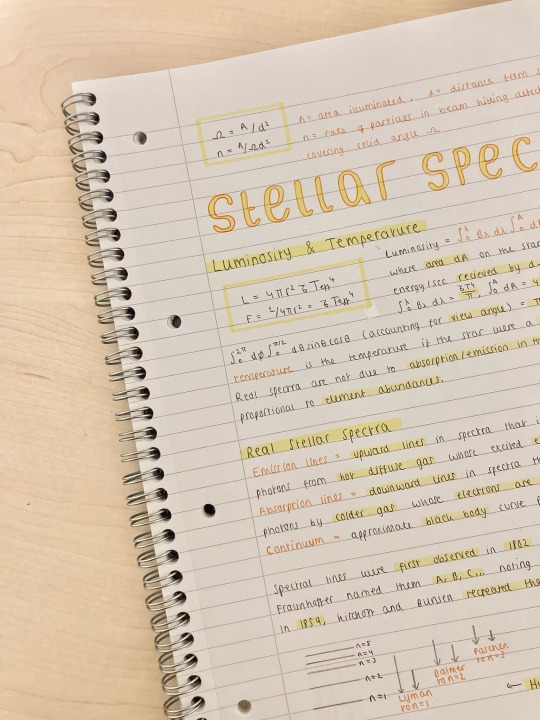 Ω = A/d²
n = A/Ωd²
A = area illuminated, d = distance from
n = rate of particles in beam hitting detec
covering solid angle Ω
Stellar Spec
Luminosity & Temperature
L = 4πr²σTeff⁴
F = L/4πr² = σTeff⁴
Luminosity = ∫₀^λ Bλ dλ ∫₀^A
where area dA on the star
energy/sec recieved by d
∫₀^λ Bλ dλ = σT⁴/π, ∫₀^A dA = 4
∫₀^2π dφ ∫₀^π/2 dθ sinθ cosθ (accounting for view angle) = π
temperature is the temperature if the star were a
Real spectra are not due to absorption/emission in th
proportional to element abundances.
Real Stellar Spectra
Emission lines = upward lines in spectra that
photons from hot diffuse gas whose excited e
Absorption lines = downward lines in spectra th
photons by colder gas whose electrons are
Continuum = approximate black body curve
Spectral lines were first observed in 1802
Fraunhoffer named them A, B, C... noting
In 1859, Kirchoff and Bunsen recreated the
n=5
n=4
n=3
n=2
n=1
Lyman
to n=1
Balmer
to n=2
Paschen
to n=3
← H